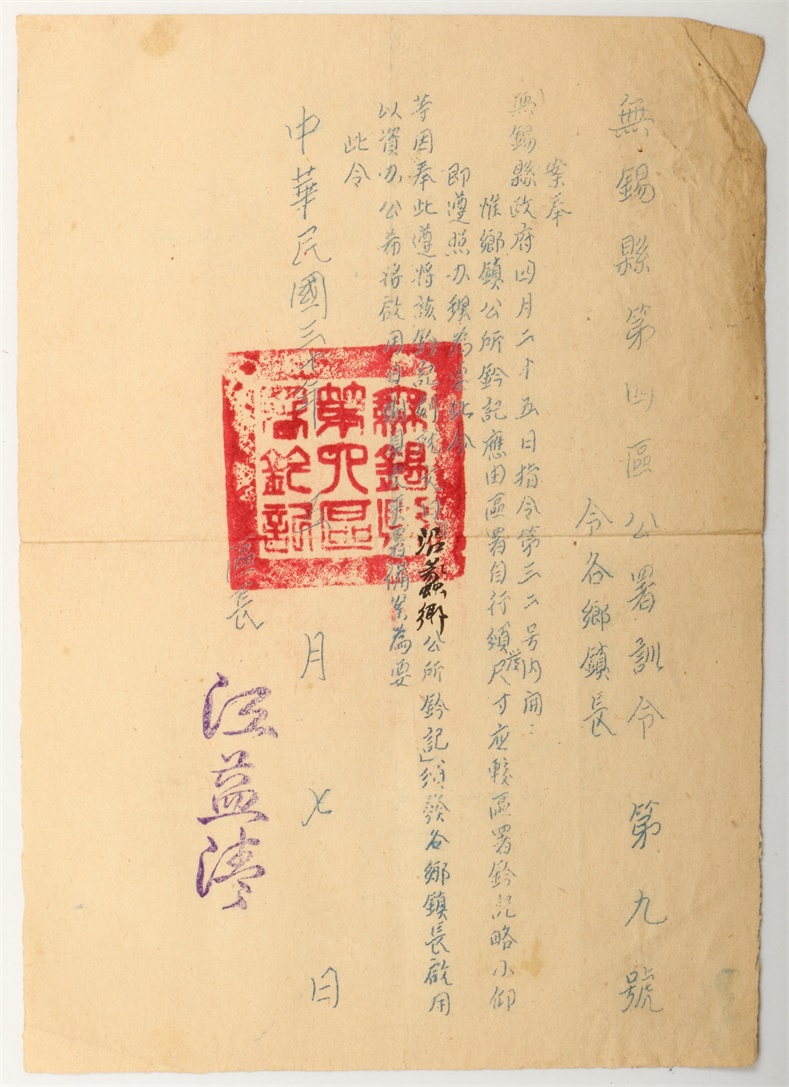 無錫縣第四區公署訓令 第九號
令各鄉鎮長
案奉
無錫縣政府四月二十五日指令第三二号內開：
惟鄉鎮公所鈐記應由區署自行頒發尺寸应較區署鈐記略小仰
即遵照办理為要此令
等因奉此遵將該鈐記刻就 沿蠡鄉公所鈐記」頒發各鄉鎮長啟用
以資办公希將啟用日期具 備案為要
此令
中華民國三十年 五月七日
區長 江益清
無錫縣
第四區
鈐記